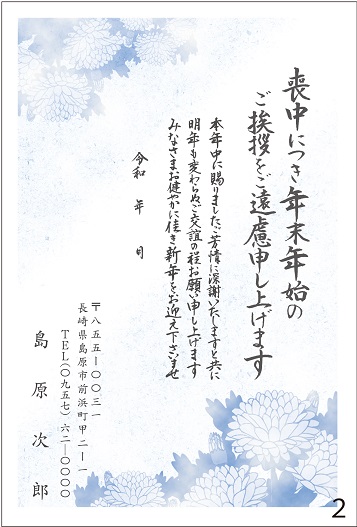 喪中につき年末年始の
ご挨拶をご遠慮申し上げます
本年中に賜りましたご芳情に深謝いたしますと共に
明年も変わらぬご交誼の程お願い申し上げます
みなさまお健やかに佳き新年をお迎え下さいませ
令和　年　月
〒八五五－〇〇三一
長崎県島原市前浜町甲二－一
ＴＥＬ（〇九五七）六二－〇〇〇〇
島原次郎
2